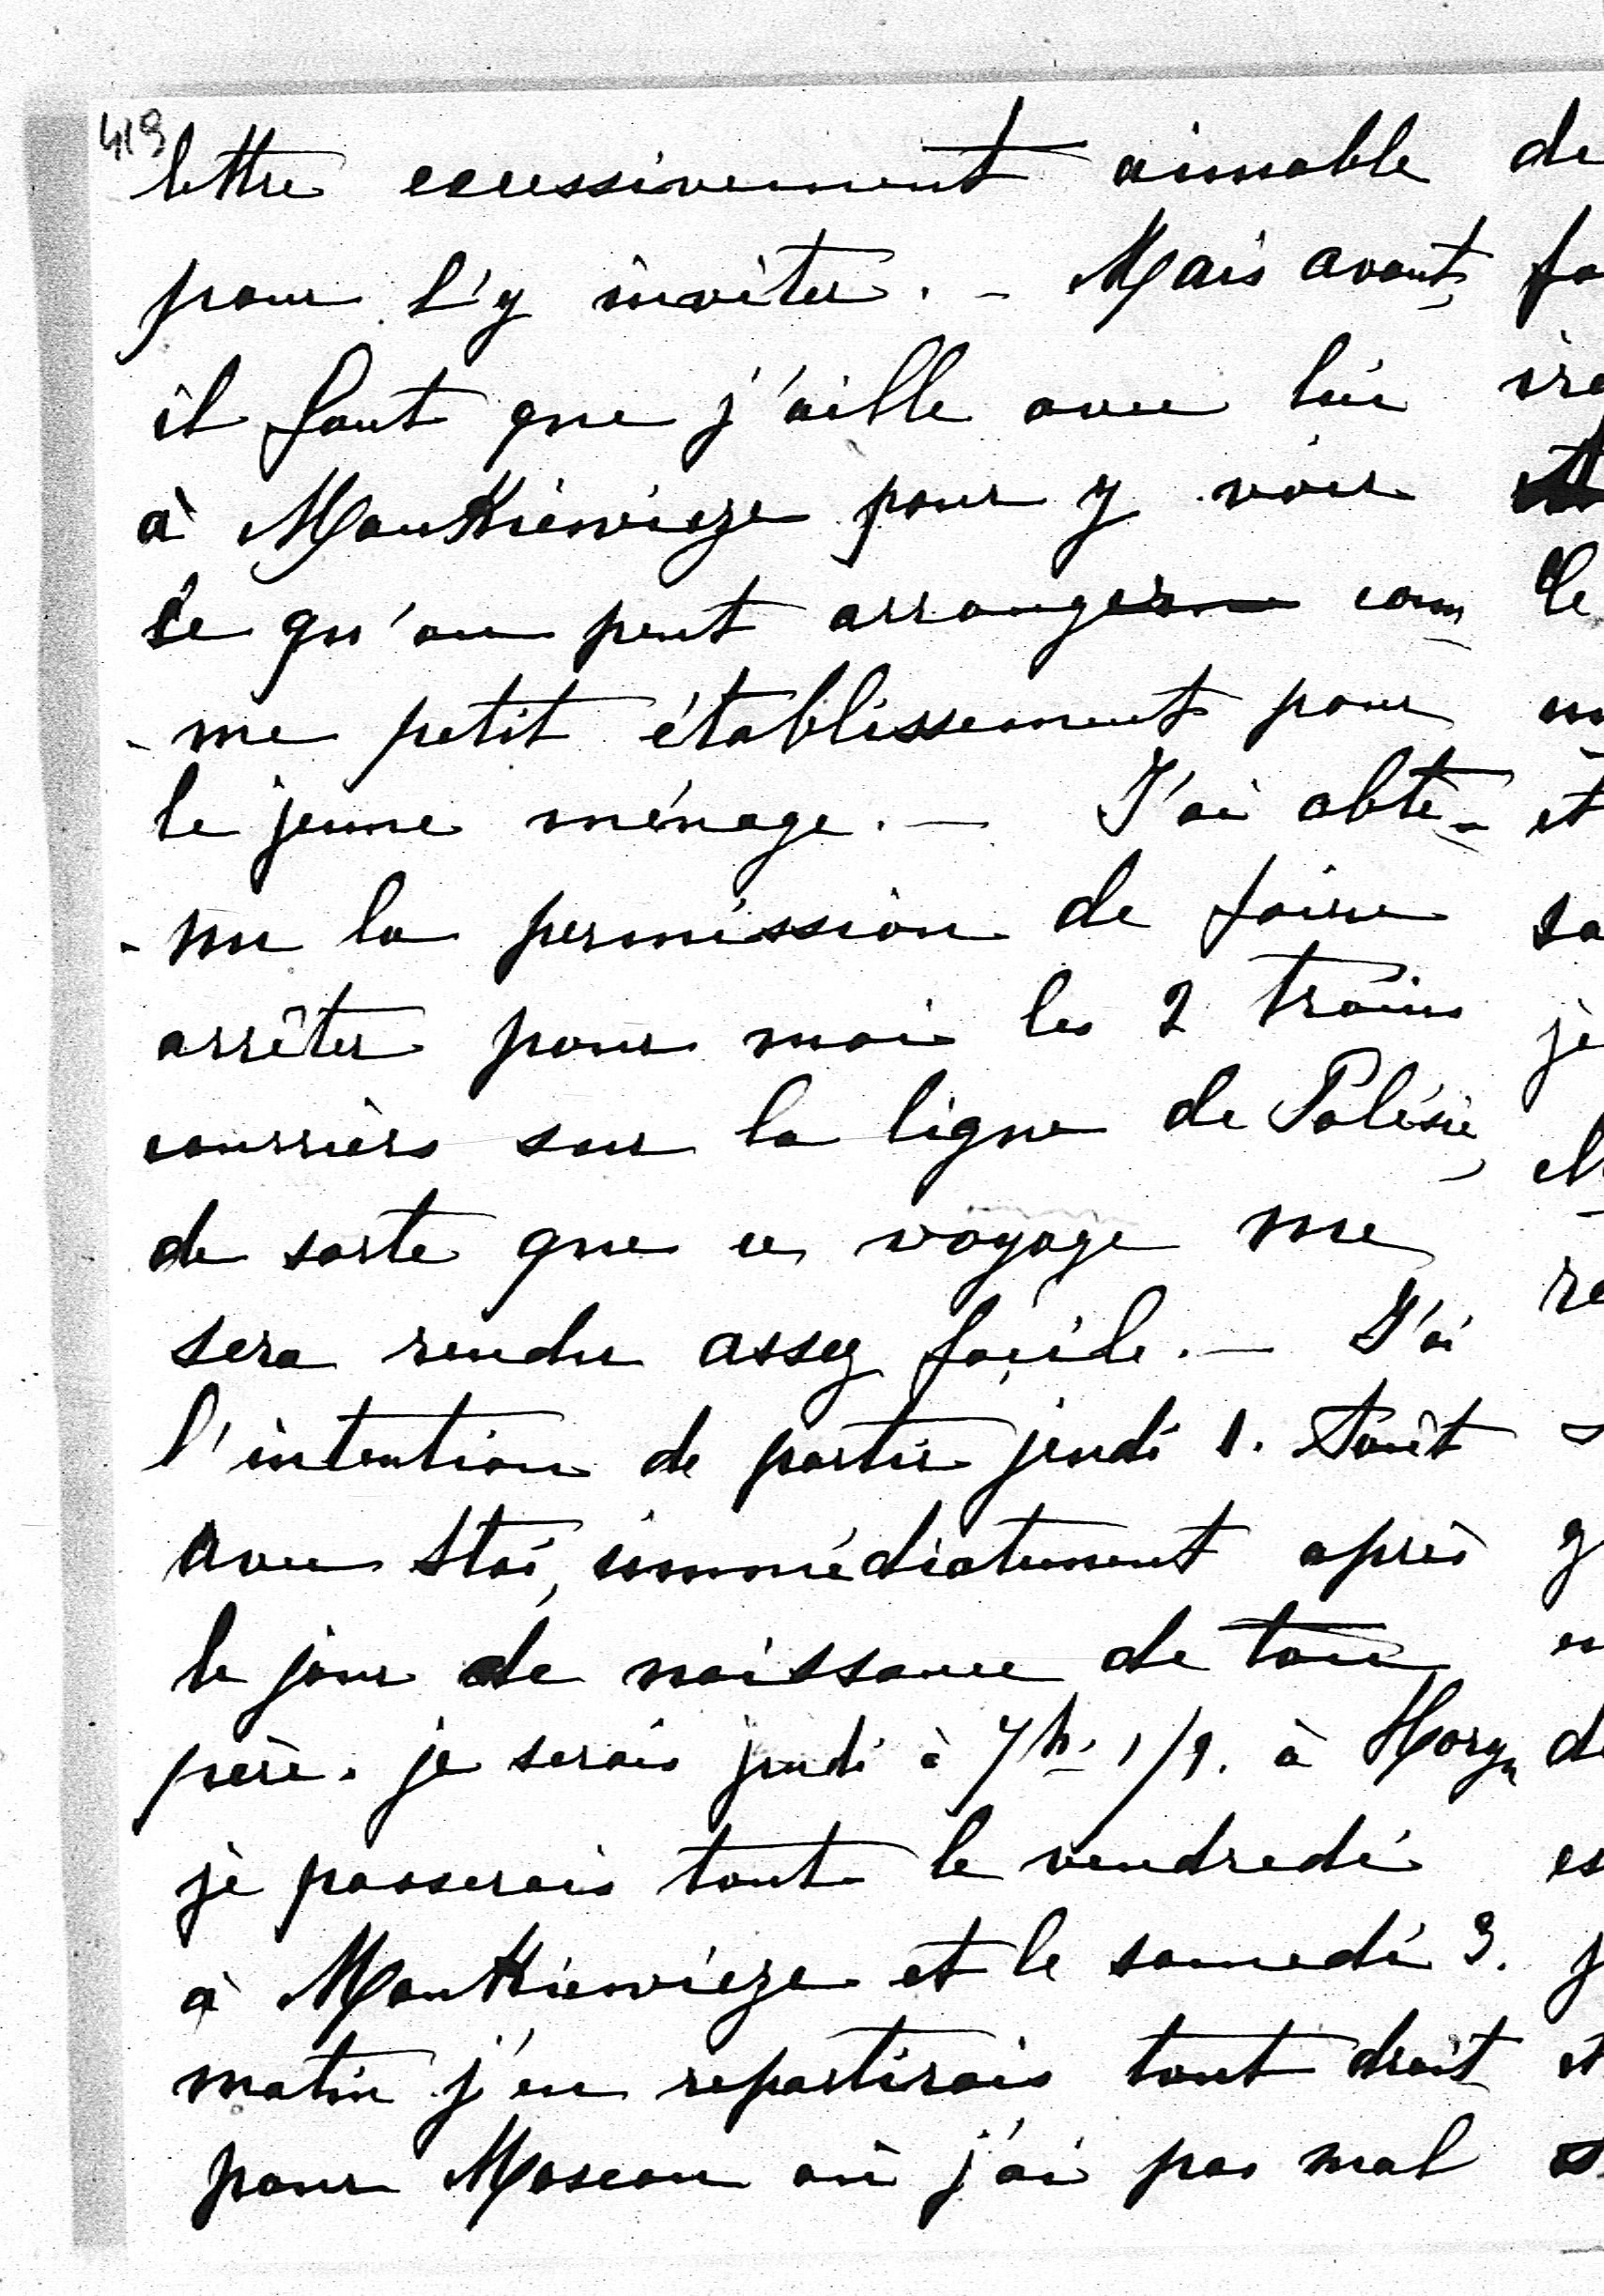 419
lettre excessivement aimable
pour l'y inviter. - Mais avant,
il faut que j'aille avec lui
à Mankiewicze pour y voir
ce qu'on peut arranger com
-me petit établissement pour
le jeune ménage. — J'ai obte-
-nu la permission de faire
arrêter pour moi les 2 trains
courriers sur la ligne de Polésie,
de sorte que ce voyage me
sera rendu assez façile. — J'ai
l'intention de partir jeudi 1. Août
avec Stas, immédiatement après
le jour de naissance de ton
père. je serais jeudi à 7h. 1/2. à Horyn
je passerais tout le vendredi
à Mankiewicze et le samedi 3.
matin j'en repartirais tout droit
pour Moscou où j'ai pas mal